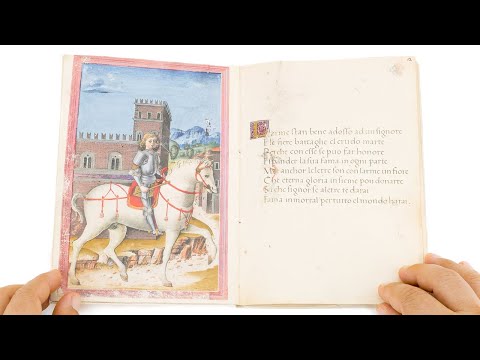 Larme stan bene adosso ad un signore
E le fiere battaglie el crudo marte
Perche con esse se puo far honore
E spander la sua fama in ogni parte
Ma anchor le letre son con larme in fiore
Che eterna gloria insieme pon donarte
Si che signor se aletre te darai
Fama inmortal per tutto el mondo harai